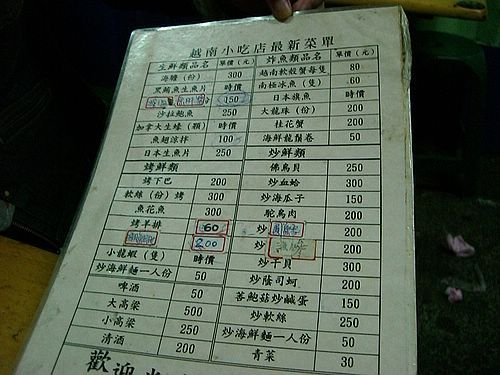 越南小吃店最新菜單
生鮮類品名 單價(元)
海膽(份) 300
黑鮪魚生魚片 時價
150
沙拉鮑魚 250
加拿大生蠔(顆) 時價
魚翅涼拌 100
日本生魚片 250
烤鮮類
烤下巴 200
軟絲(份)烤 300
魚花魚 300
烤羊排 60
200
小龍蝦(隻) 時價
炒海鮮麵一人份 50
啤酒 50
大高梁 500
小高梁 250
清酒 200
炸魚類品名 單價(元)
越南軟殼蟹每隻 80
南極冰魚(隻) 60
日本旗魚 時價
大龍珠(份) 200
桂花蟹 200
海鮮龍鬚卷 50
炒鮮類
佛鳥貝 250
炒血蛤 300
炒海瓜子 150
鴕鳥肉 200
炒 200
炒 200
炒干貝 300
炒蔭司蚵 200
荖鮑菇炒鹹蛋 150
炒軟絲 250
炒海鮮麵一人份 50
青菜 30
歡迎